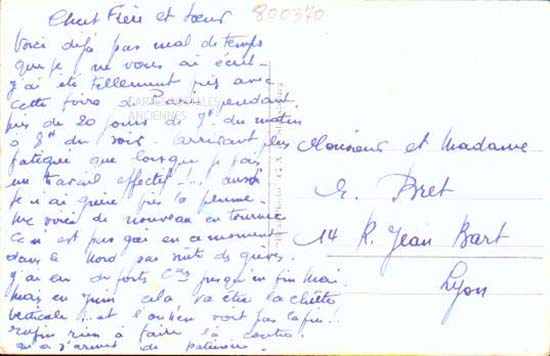 800370
Cher Frère et sœur
Voici déjà pas mal de temps
que je ne vous ai écrit -
j'ai été tellement pris avec
cette foire de Paris pendant
près de 20 jours de 9h du matin
à 8h du soir. arrivant plus
fatigué que lorsque je fais
un travail effectif !... aussi
je n'ai guère pris la plume.
Me voici de nouveau en tournée
Ce n'est pas gai en ce moment
dans le Nord par suite des grèves.
j'ai eu de forts Cas jusqu'en fin Mai.
Mais en Juin cela va être la chute
verticale... et l'on en voit pas la fin !!
enfin rien à faire là contre.
qu'à s'armer de patience.
CARTES POSTALES
ANCIENNES
Monsieur et Madame
Bret
14 R. Jean Bart
Lyon